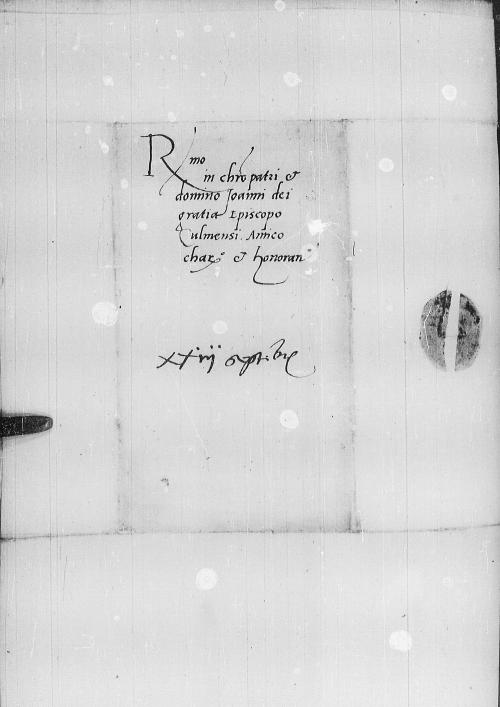 Rmo
in chro patri &
domino Joanni dei
gratia Episcopo
Culmensi. Amico
charo & honoran
xxiij septembris